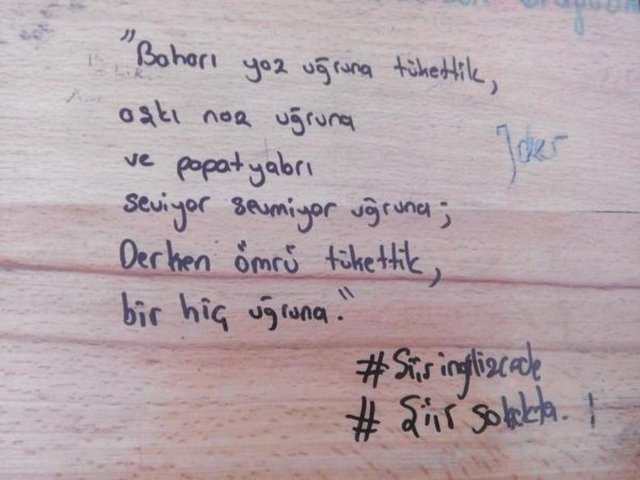 "Baharı yaz uğruna tükettik,
aşkı naz uğruna
ve papatyaları
seviyor sevmiyor uğruna;
Derken ömrü tükettik,
bir hiç uğruna."
#Şiiringilizcede
# Şiir sokakta. !